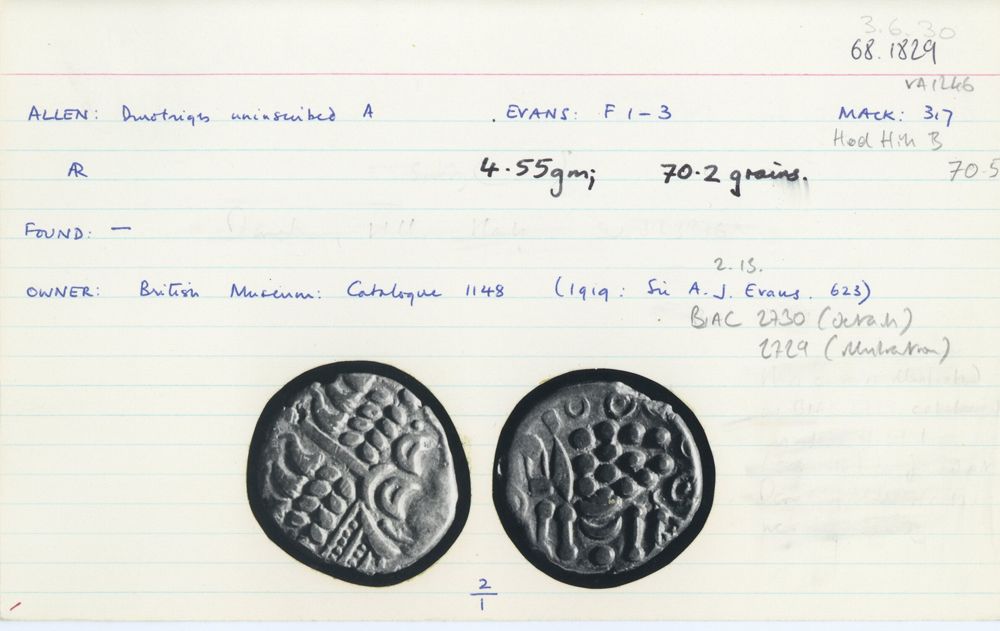 3.6.30
68.1829
VA1246
ALLEN: Durotriges uninscribed A . EVANS: F 1-3 MACK: 317
Hod Hill B
AR 4.55gm; 70.2 grains. 70.5
FOUND: —
2.13.
OWNER: British Museum: Catalogue 1148 (1919: Sir A. J. Evans. 623)
BIAC 2730 (details)
2729 (illustration)
2
1